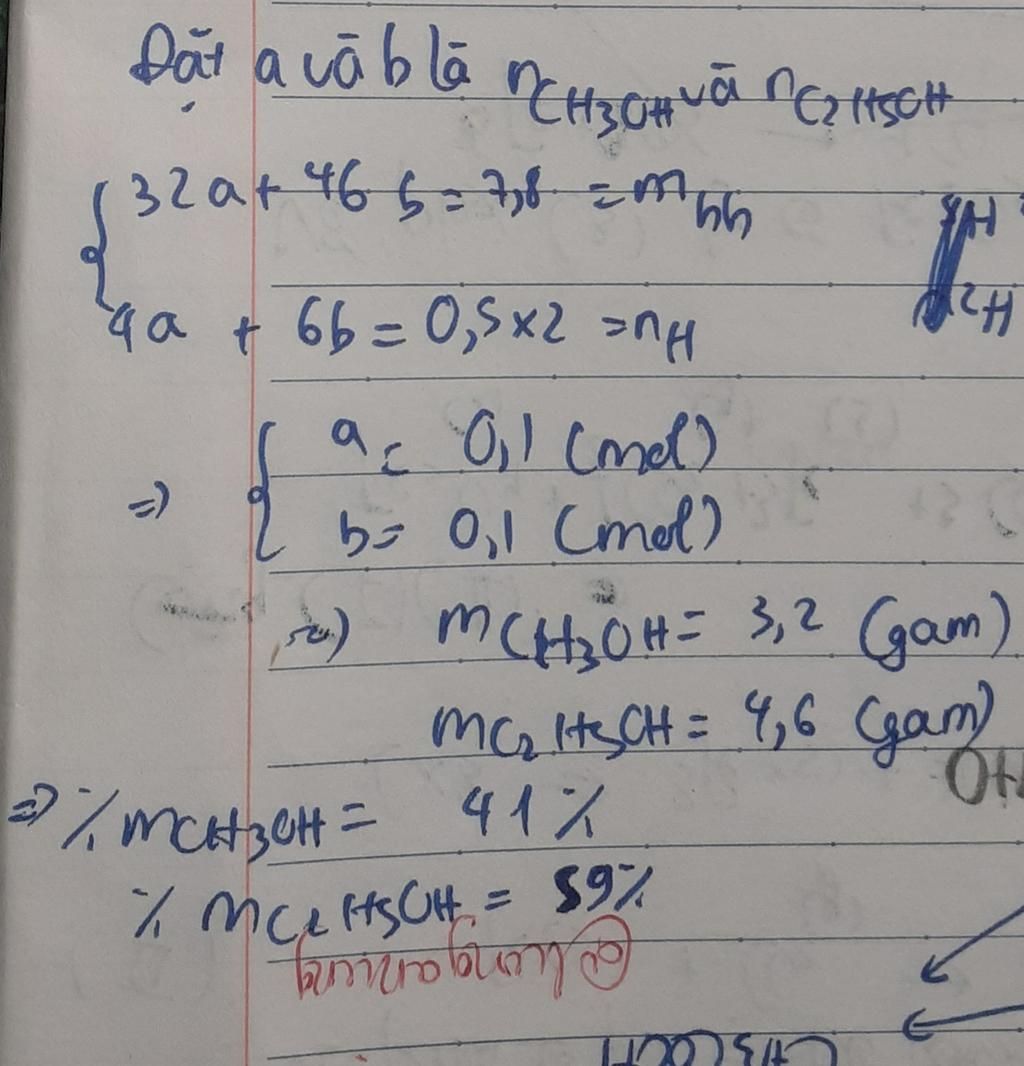 Đặt a và b là nCH3OH và nC2H5OH
32a + 46b = 7,8 = mhh
4a + 6b = 0,5x2 = nH
=> a = 0,1 (mol)
b = 0,1 (mol)
=> mCH3OH = 3,2 (gam)
mC2H5OH = 4,6 (gam)
=> % mCH3OH = 41%
% mC2H5OH = 59%
CH3COOH